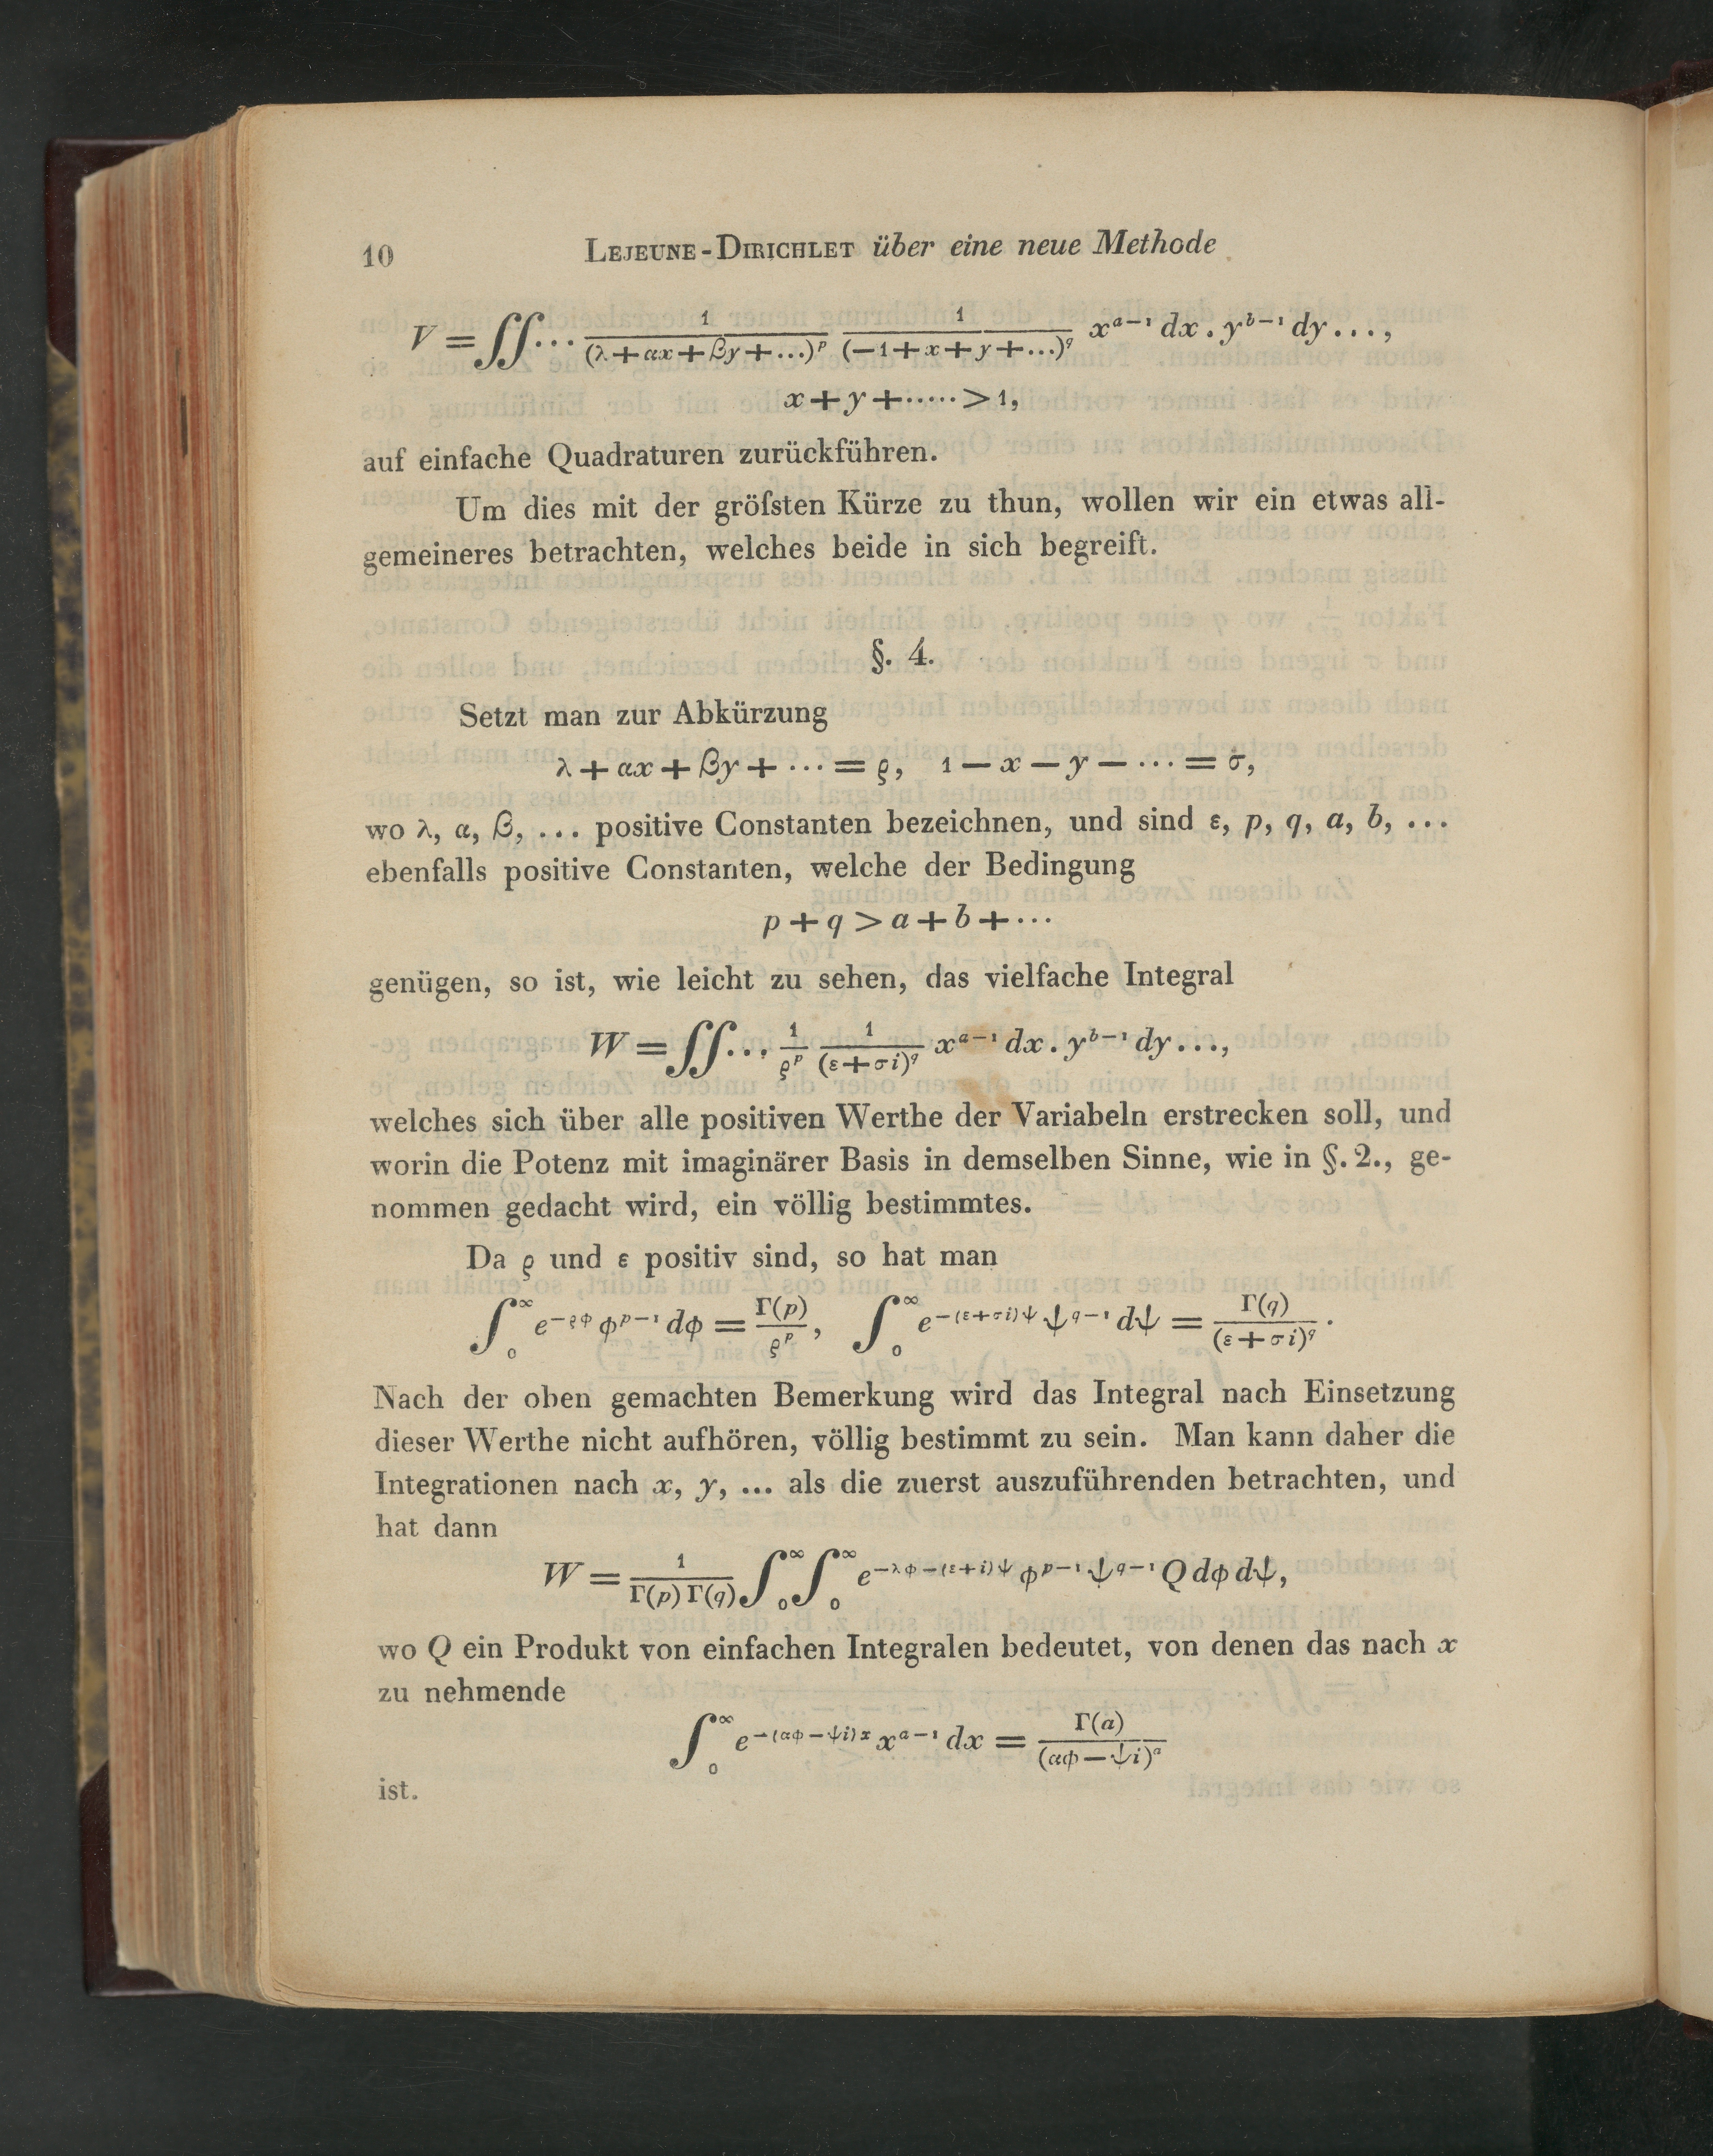 10 LEJEUNE-DIRICHLET über eine neue Methode
V = ∫∫... 1/(λ+αx+βy+...)^p 1/(−1+x+y+...)^q x^{a−1} dx . y^{b−1} dy...,
x+y+.....>1,
auf einfache Quadraturen zurückführen.
Um dies mit der gröſsten Kürze zu thun, wollen wir ein etwas all-
gemeineres betrachten, welches beide in sich begreift.
§. 4.
Setzt man zur Abkürzung
λ+αx+βy+...=ϱ, 1−x−y−...=σ,
wo λ, α, β, ... positive Constanten bezeichnen, und sind ε, p, q, a, b, ...
ebenfalls positive Constanten, welche der Bedingung
p+q>a+b+...
genügen, so ist, wie leicht zu sehen, das vielfache Integral
W = ∫∫... 1/ϱ^p 1/(ε+σi)^q x^{a−1} dx . y^{b−1} dy...,
welches sich über alle positiven Werthe der Variabeln erstrecken soll, und
worin die Potenz mit imaginärer Basis in demselben Sinne, wie in §. 2., ge-
nommen gedacht wird, ein völlig bestimmtes.
Da ϱ und ε positiv sind, so hat man
∫_0^∞ e^{−ϱφ} φ^{p−1} dφ = Γ(p)/ϱ^p, ∫_0^∞ e^{−(ε+σi)ψ} ψ^{q−1} dψ = Γ(q)/(ε+σi)^q.
Nach der oben gemachten Bemerkung wird das Integral nach Einsetzung
dieser Werthe nicht aufhören, völlig bestimmt zu sein. Man kann daher die
Integrationen nach x, y, ... als die zuerst auszuführenden betrachten, und
hat dann
W = 1/(Γ(p)Γ(q)) ∫_0^∞ ∫_0^∞ e^{−λφ−(ε+i)ψ} φ^{p−1} ψ^{q−1} Q dφ dψ,
wo Q ein Produkt von einfachen Integralen bedeutet, von denen das nach x
zu nehmende
∫_0^∞ e^{−(αφ−ψi)x} x^{a−1} dx = Γ(a)/(αφ−ψi)^a
ist.